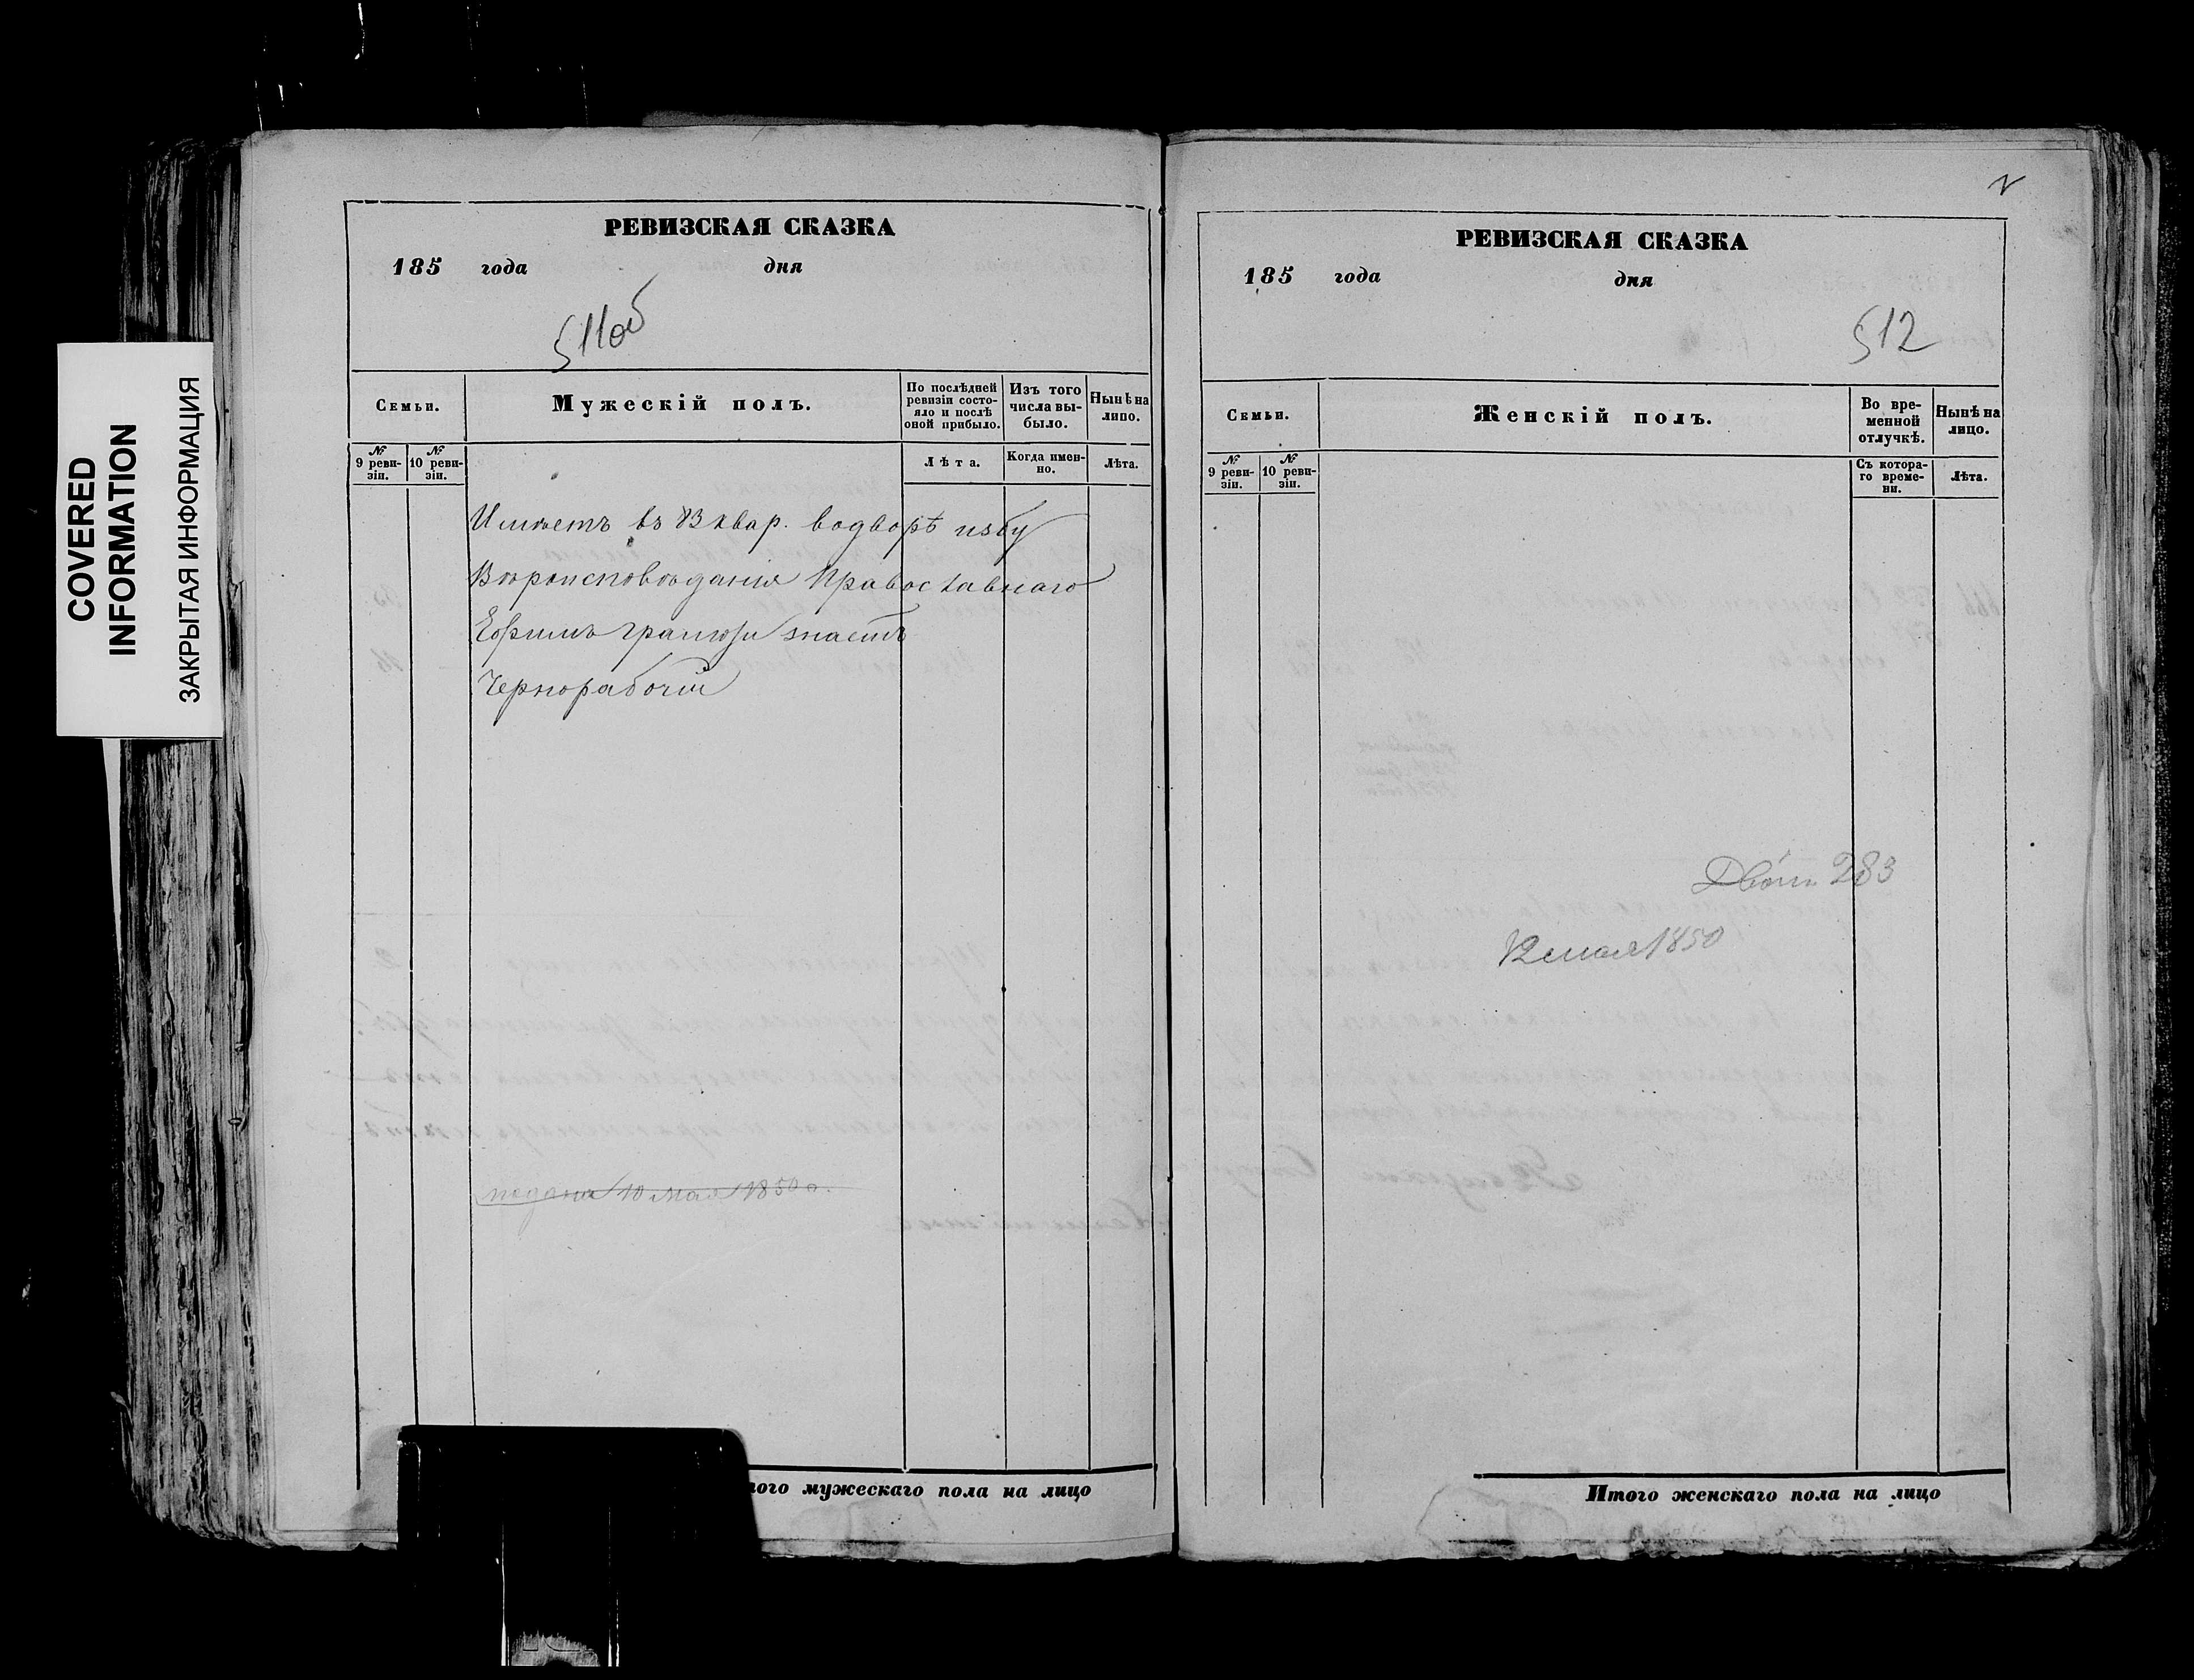 COVERED
INFORMATION
ЗАКРЫТАЯ ИНФОРМАЦИЯ
РЕВИЗСКАЯ СКАЗКА
185 года дня
511об
Семьи.
Мужескій полъ.
По послѣдней ревизіи состояло и послѣ оной прибыло.
Изъ того числа выбыло.
Нынѣ на лицо.
№ 9 ревизіи.
№ 10 ревизіи.
Лѣта.
Когда именно.
Лѣта.
Имѣетъ въ 83 квар. водворѣ избу
Вѣроисповѣданія Православнаго
Ефимъ грамоти знаетъ
Чернорабочій
подана 10 мая 1850 г.
того мужескаго пола на лицо
РЕВИЗСКАЯ СКАЗКА
185 года дня
512
Семьи.
Женскій полъ.
Во временной отлучкѣ.
Нынѣ на лицо.
№ 9 ревизіи.
№ 10 ревизіи.
Съ котораго времени.
Лѣта.
283
12 мая 1850
Итого женскаго пола на лицо